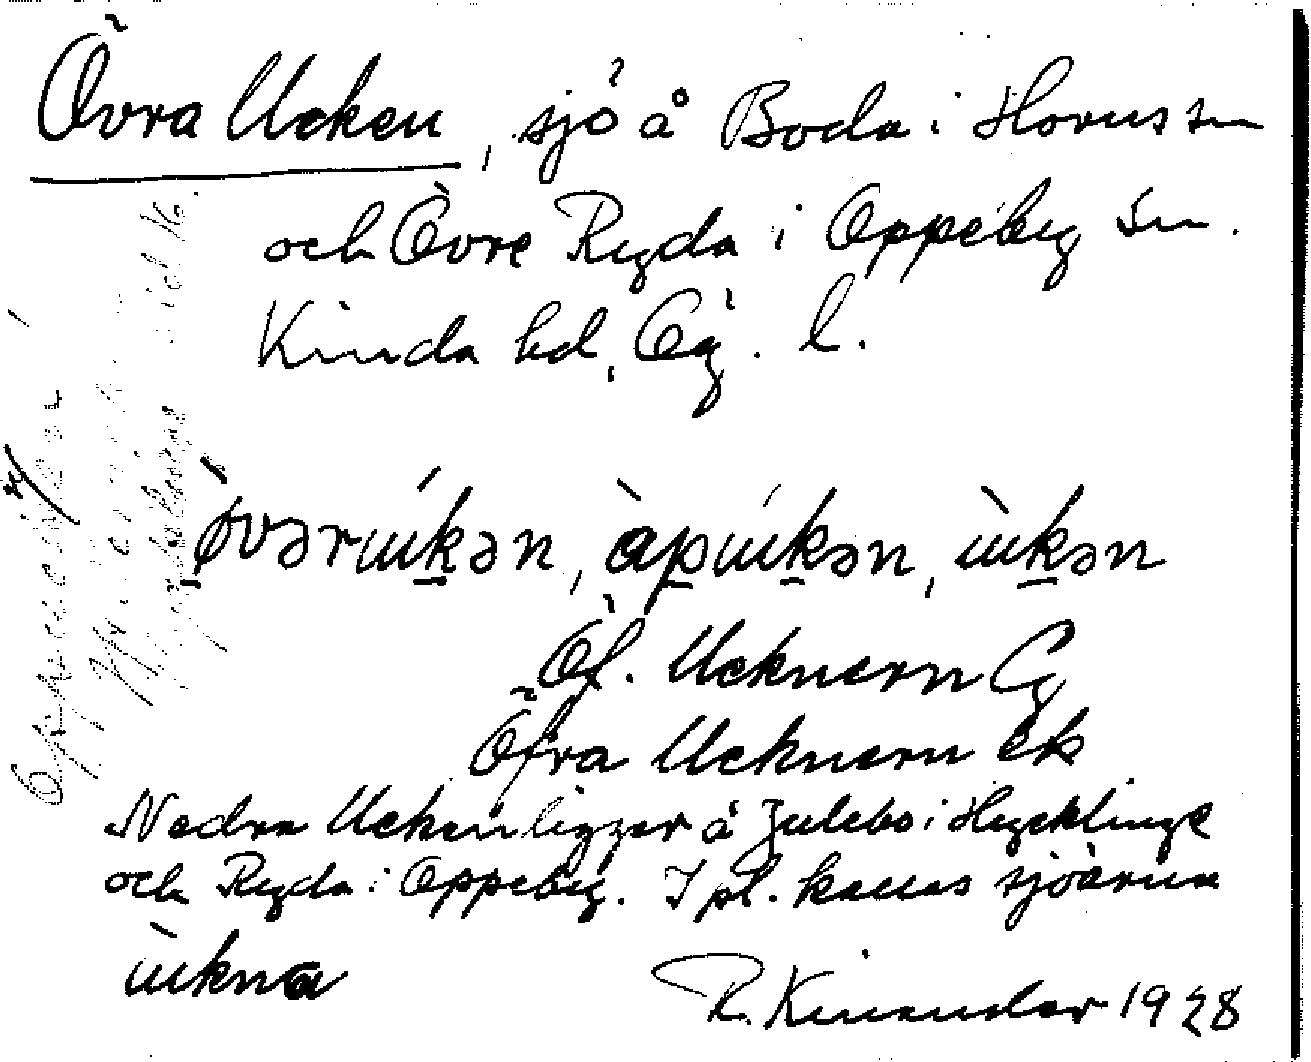 Övra Ucken, sjö å Boda i Horns sn
och Övre Ryda i Oppeby sn.
Kinda hd, Ög. l.
øvərɯkən, àpɯkən, ɯ̀kən
Öf. Ucknern Cg
Öfra Ucknern ek
Nedra Ucken ligger å Julebo i Hycklinge
och Ryda i Oppeby. I pl. kallas sjöarna
ɯ̀kna
R. Kinander 1928